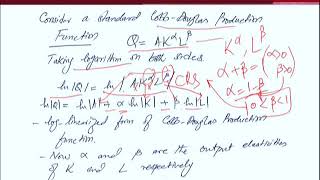 Consider a standard Cobb-Douglas Production
Function Q = AK^α L^β K^α, L^β
Taking logarithm on both sides α+β = (α>0 β>0)
ln|Q| = ln|AK^α L^β| CRS α = 1-β
ln|Q| = ln|A| + α ln|K| + β ln|L| 0<β<1
- log-linearized form of Cobb-Douglas Production
function.
- Now α and β are the output elasticities
of K and L respectively